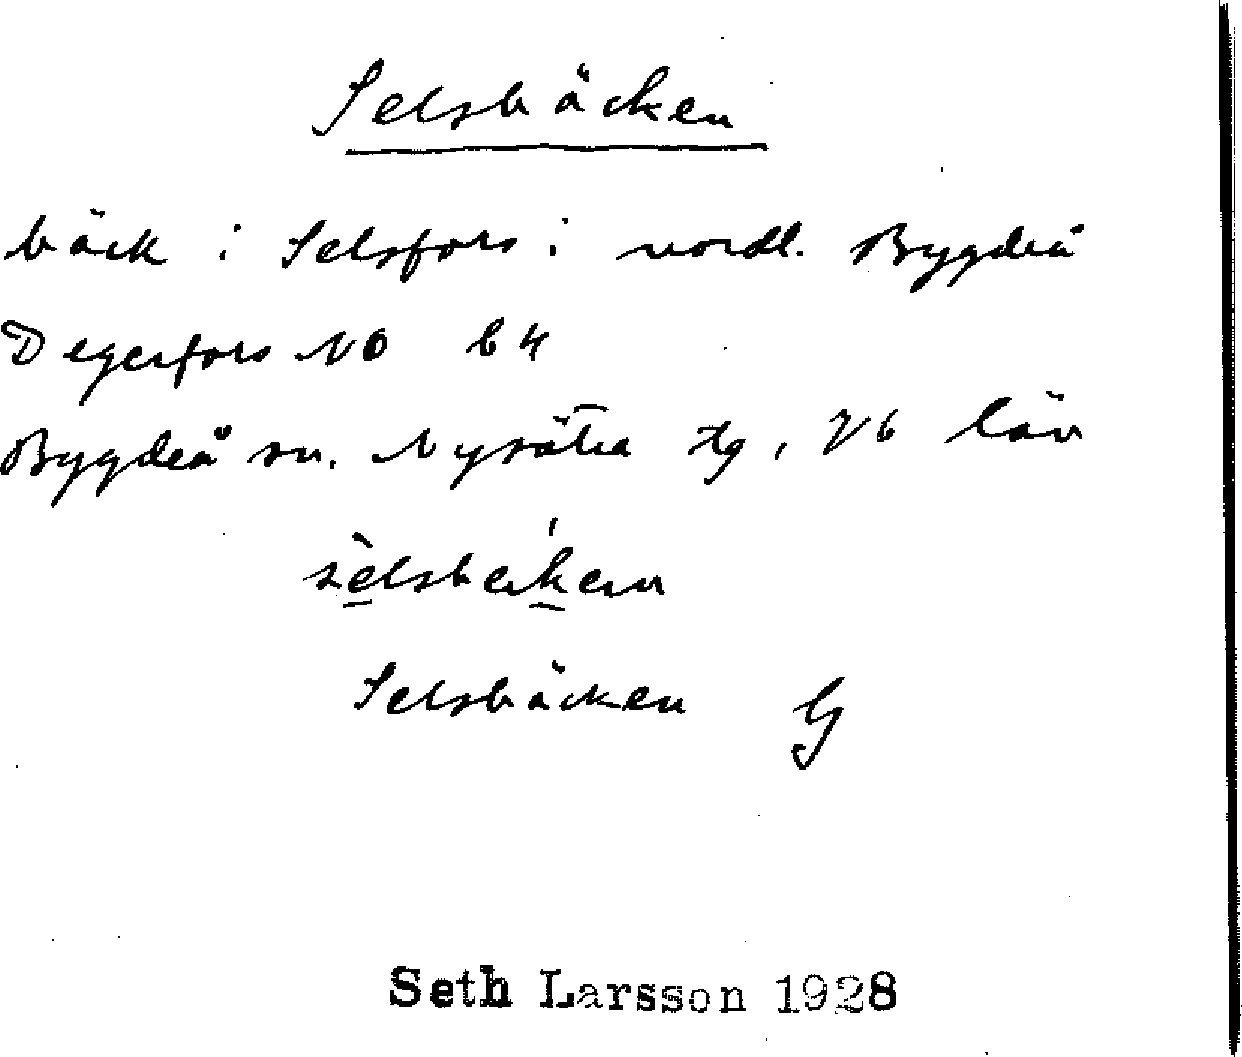 Selsbäcken
bäck i Selsfors i nordl. Bygdeå
Degerfors NO b4
Bygdeå sn. Nysätra tg, Vb län
sèlsbekenn
Selsbäcken G
Seth Larsson 1928